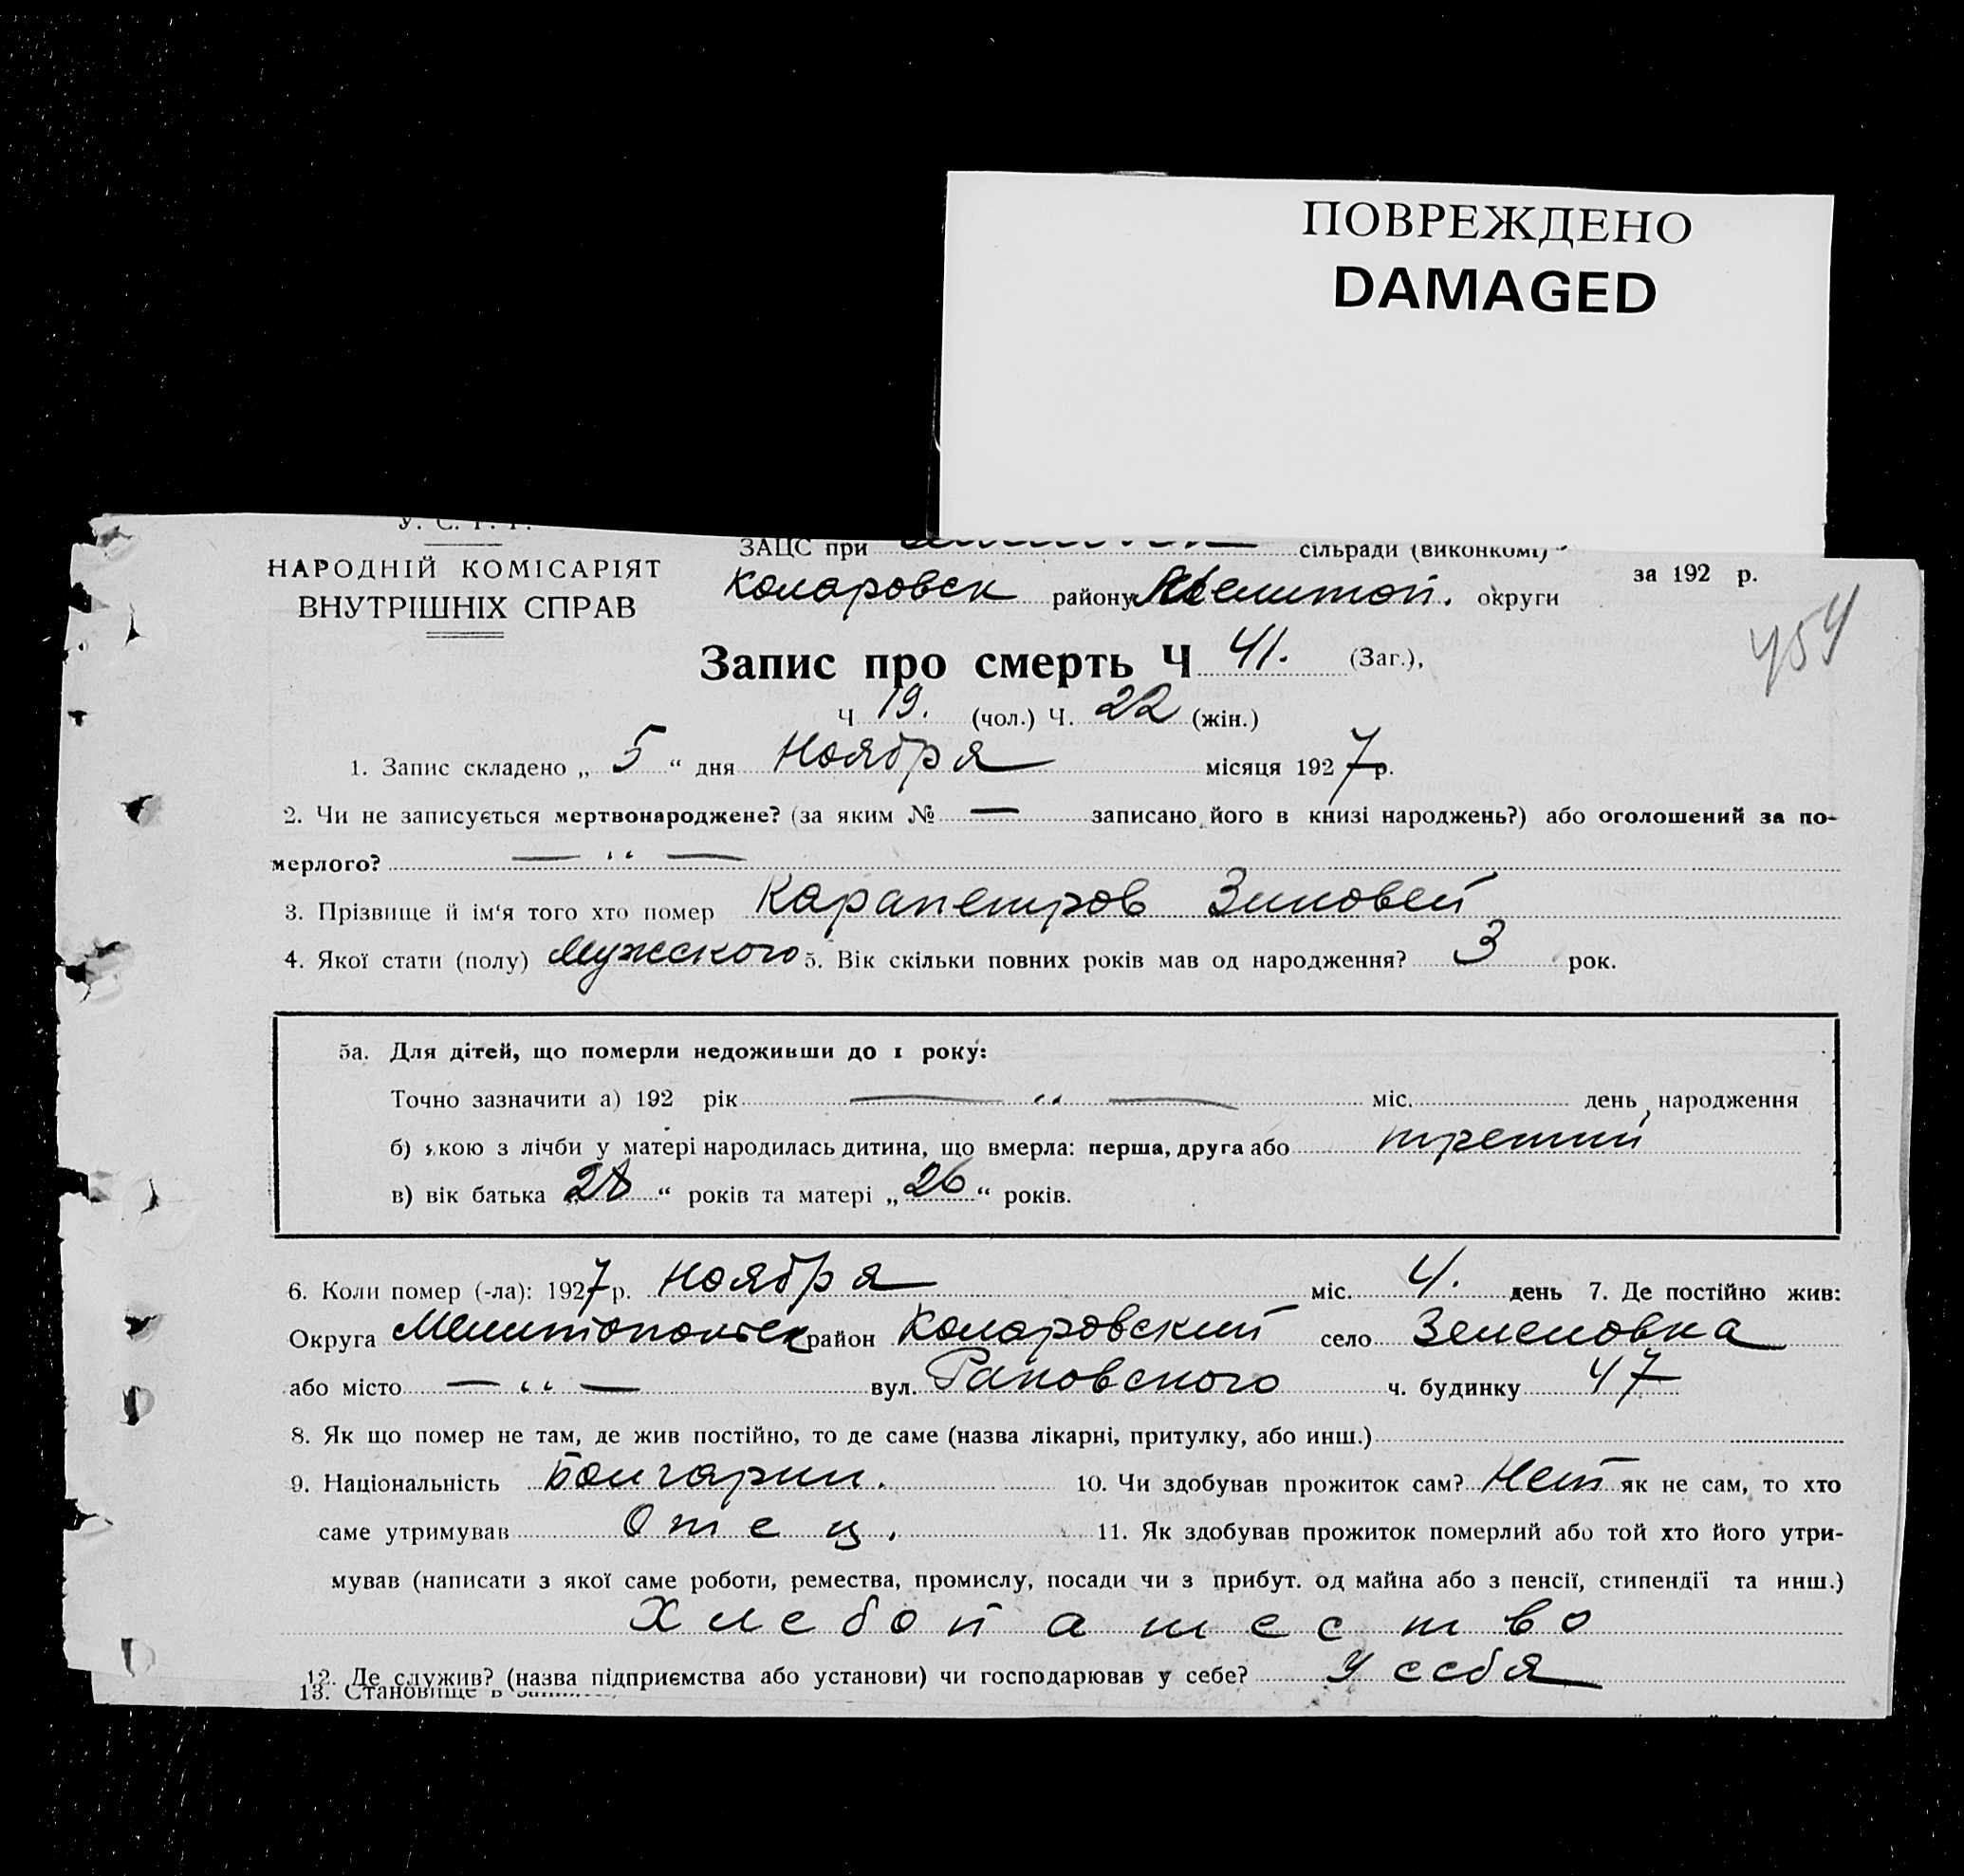 ПОВРЕЖДЕНО
DAMAGED
У. С. Р. Р.
НАРОДНІЙ КОМІСАРІЯТ
ВНУТРІШНІХ СПРАВ
ЗАЦС при сільради (виконкомі)
Коларовск району Мелитоп. округи
за 192 р.
454
Запис про смерть Ч 41. (Заг.),
Ч 19. (чол.) Ч. 22 (жін.)
1. Запис складено „ 5 “ дня Ноября місяця 1927 р.
2. Чи не записується мертвонароджене? (за яким № — записано його в книзі народжень?) або оголошений за по-
мерлого? — “ —
3. Прізвище й ім‘я того хто помер Карапетров Зиновей
4. Якої стати (полу) Мужского 5. Вік скільки повних років мав од народження? 3 рок.
5а. Для дітей, що померли недоживши до 1 року:
Точно зазначити а) 192 рік — “ — міс. день народження
б) якою з лічби у матері народилась дитина, що вмерла: перша, друга або третий
в) вік батька „ 28 “ років та матері „ 26 “ років.
6. Коли помер (-ла): 1927 р. Ноября міс. 4. день 7. Де постійно жив:
Округа Мелитопольск район Коларовский село Зеленовка
або місто — “ — вул. Раковского ч. будинку 47
8. Як що помер не там, де жив постійно, то де саме (назва лікарні, притулку, або инш.)
9. Національність Болгарин. 10. Чи здобував прожиток сам? Нет як не сам, то хто
саме утримував Отец. 11. Як здобував прожиток померлий або той хто його утри-
мував (написати з якої саме роботи, ремества, промислу, посади чи з прибут. од майна або з пенсії, стипендії та инш.)
Хлебопашество
12. Де служив? (назва підприємства або установи) чи господарював у себе? У себя
13. Становище в